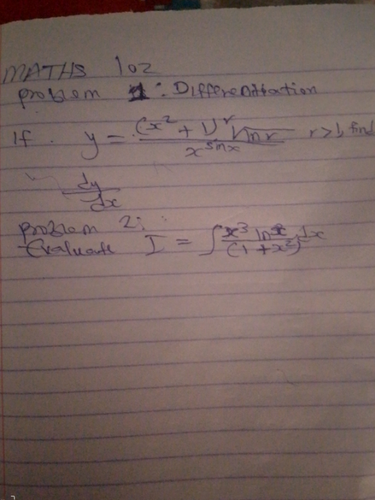 MATHS 102
problem 1: Differentiation
If y = (x² + 1)ʳ √ / x^sin x r > 1, find
dy/dx
problem 2:
Evaluate I = ∫ x³ ln x dx / (1 + x²)